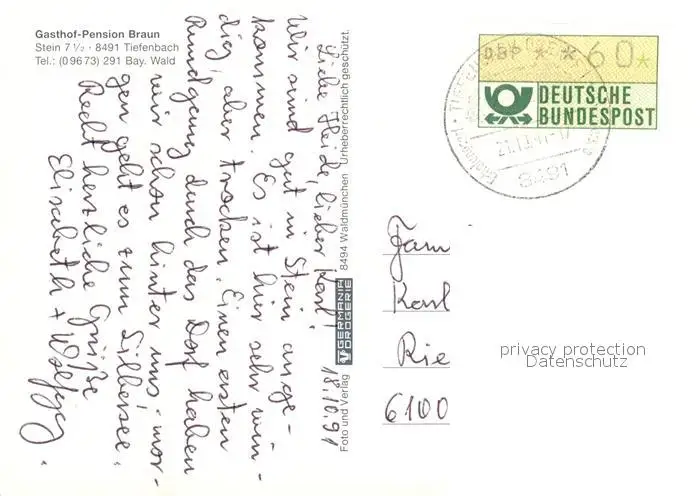 Gasthof-Pension Braun
Stein 7 ½ · 8491 Tiefenbach
Tel.: (0 96 73) 291 Bay. Wald
18.10.91
Liebe Heide, lieber Karl!
Wir sind gut in Stein ange-
kommen. Es ist hier sehr win-
dig, aber trocken. Einen ersten
Rundgang durch das Dorf haben
wir schon hinter uns, mor-
gen geht es zum Silbersee.
Recht herzliche Grüße
Elisabeth + Wolfgang.
Foto und Verlag GERMANIA DROGERIE 8494 Waldmünchen Urheberrechtlich geschützt.
DBP * * 60 *
DEUTSCHE
BUNDESPOST
8491
Fam
Karl
Rie
6100
privacy protection
Datenschutz